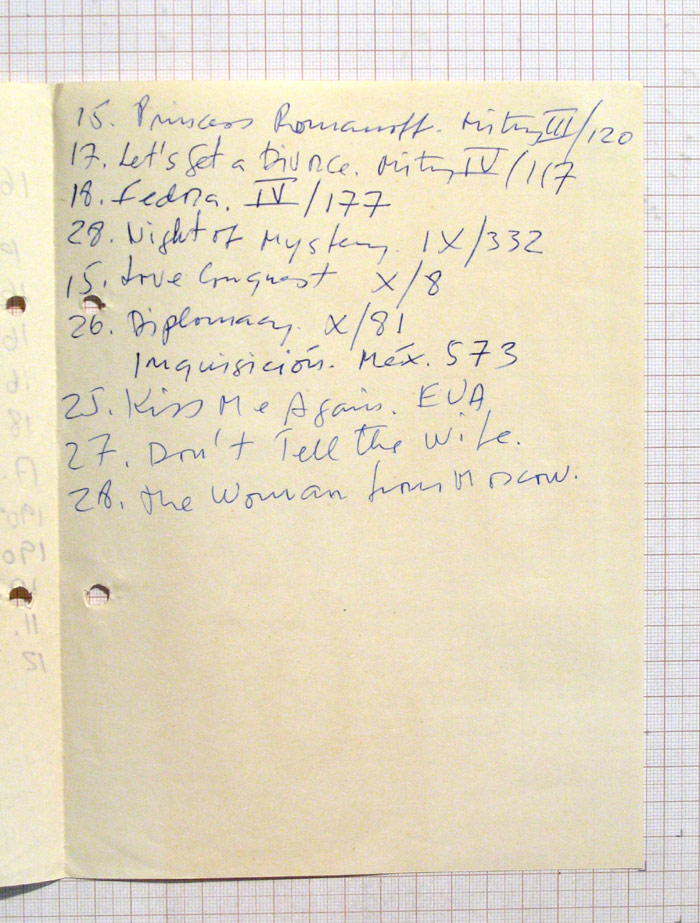 15. Princess Romanoff. Mitry III/120
17. Let's Get a Divorce. Mitry IV/117
18. Fedora. IV/177
28. Night of Mystery. IX/332
15. Love Conquest X/8
26. Diplomacy. X/81
Inquisición. Méx. 573
25. Kiss Me Again. EUA
27. Don't Tell the Wife.
28. The Woman from Moscow.